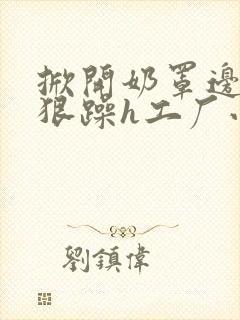 掀開奶罩邊
狠躁h工厂
劉鎮偉